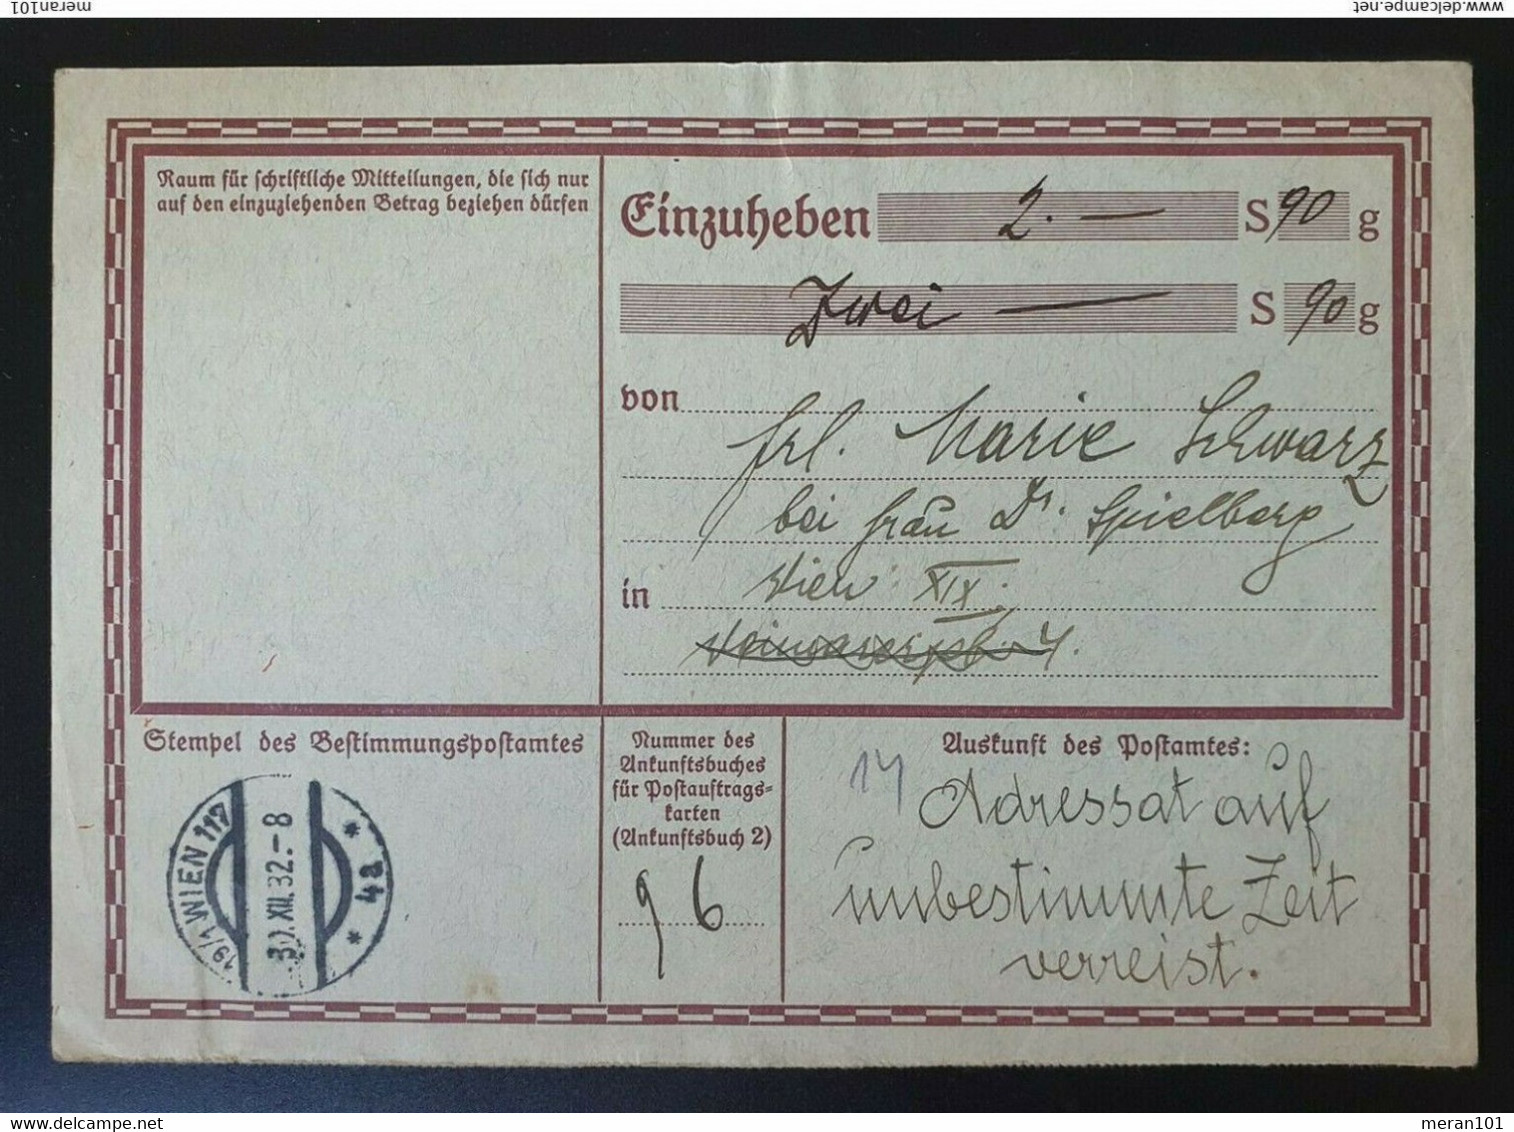 www.delcampe.net
meran101
Raum für schriftliche Mitteilungen, die sich nur
auf den einzuziehenden Betrag beziehen dürfen
Einzuheben 2.— S 90 g
Zwei — S 90 g
von
Frl. Marie Schwarz
bei Frau Dr. Spielberg
in Wien XIX.
4.
Stempel des Bestimmungspostamtes
19/1 WIEN 117
XII.32.-8
* 4a *
Nummer des
Ankunftsbuches
für Postauftrags-
karten
(Ankunftsbuch 2)
96
14
Auskunft des Postamtes:
Adressat auf
unbestimmte Zeit
verreist.
www.delcampe.net
meran101